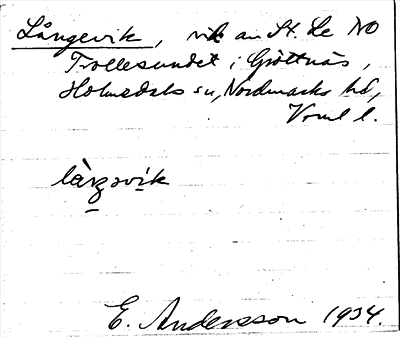 Långevik, vik av St. Le NO
Trollesundet i Gröttnäs,
Holmedals sn, Nordmarks hd,
Vrml l.
làŋəvik
E. Andersson 1934.